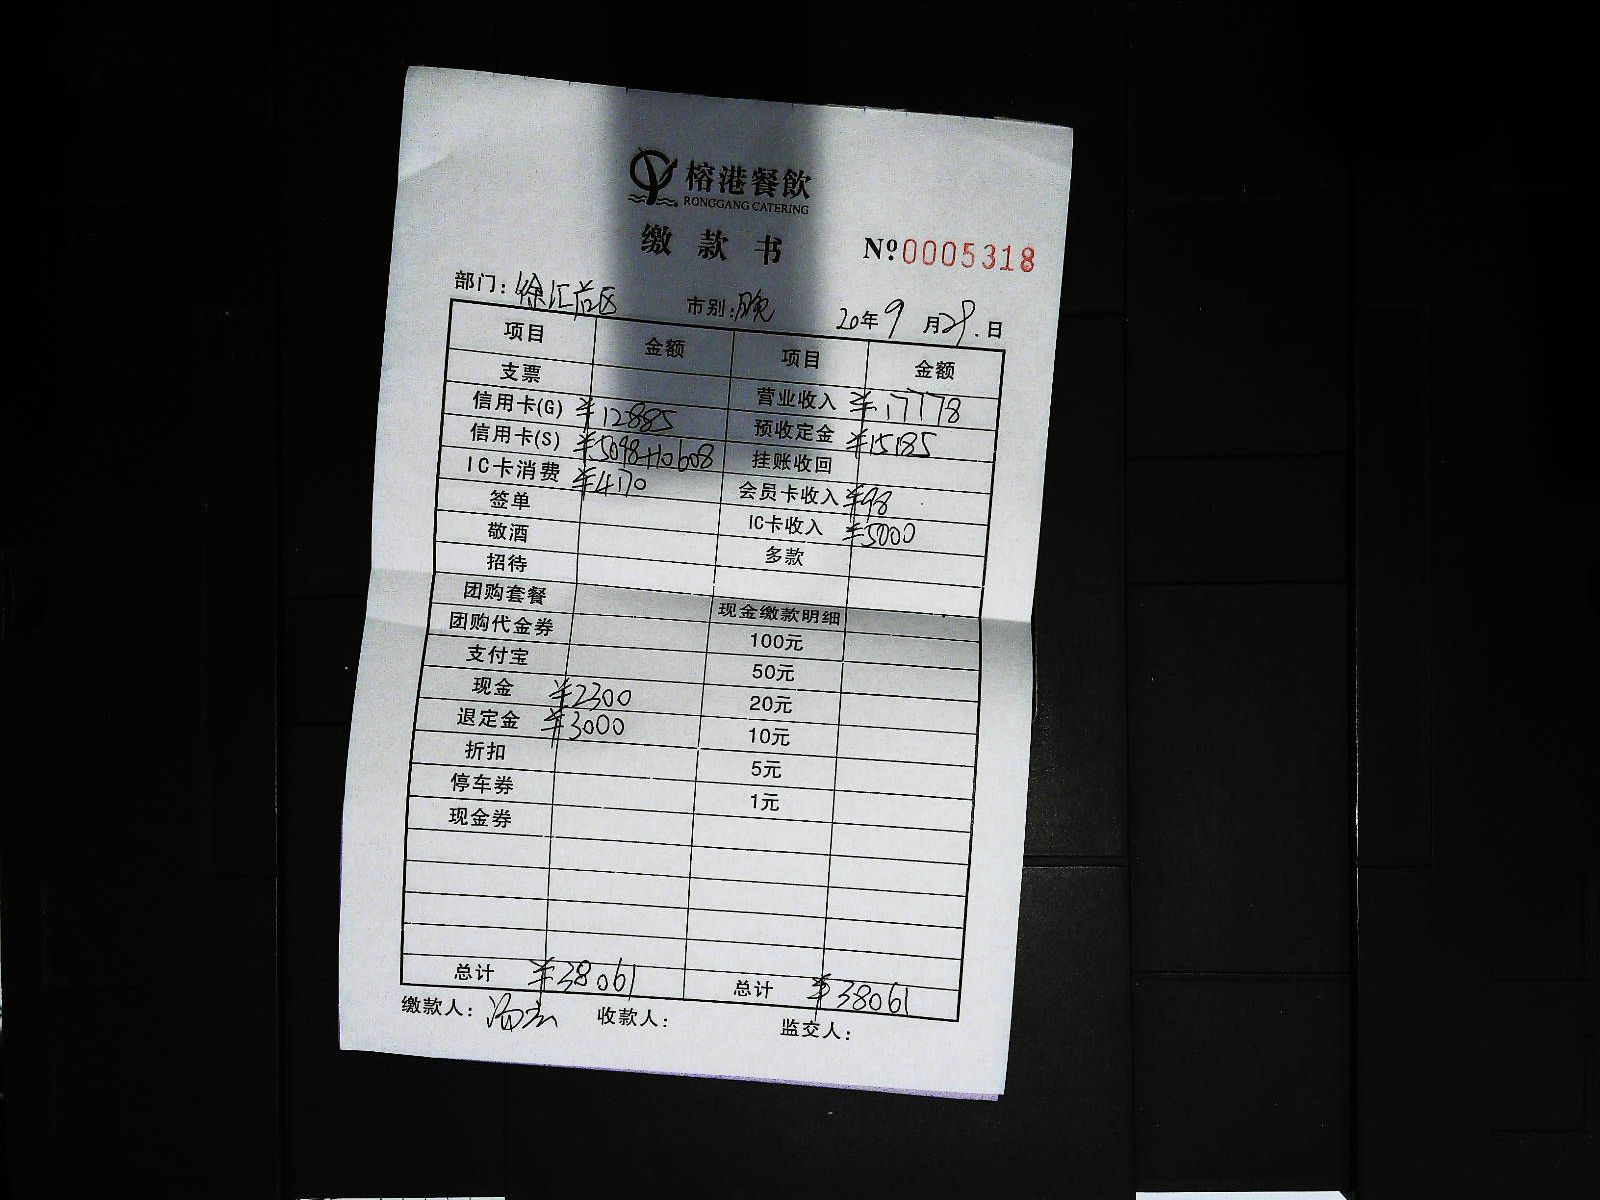 榕港餐飲
RONGGANG CATERING
缴款书
Nº0005318
部门：徐汇 市别：晚 20年9月29.日
项目 金额 项目 金额
支票 营业收入 ¥17778
信用卡(G) ¥12885 预收定金 ¥15185
信用卡(S) ¥5098+10608 挂账收回
IC卡消费 ¥4170 会员卡收入 ¥98
签单 IC卡收入 ¥5000
敬酒 多款
招待
团购套餐 现金缴款明细
团购代金券 100元
支付宝 50元
现金 ¥2300 20元
退定金 ¥3000 10元
折扣 5元
停车券 1元
现金券
总计 ¥38061 总计 ¥38061
缴款人： 收款人： 监交人：